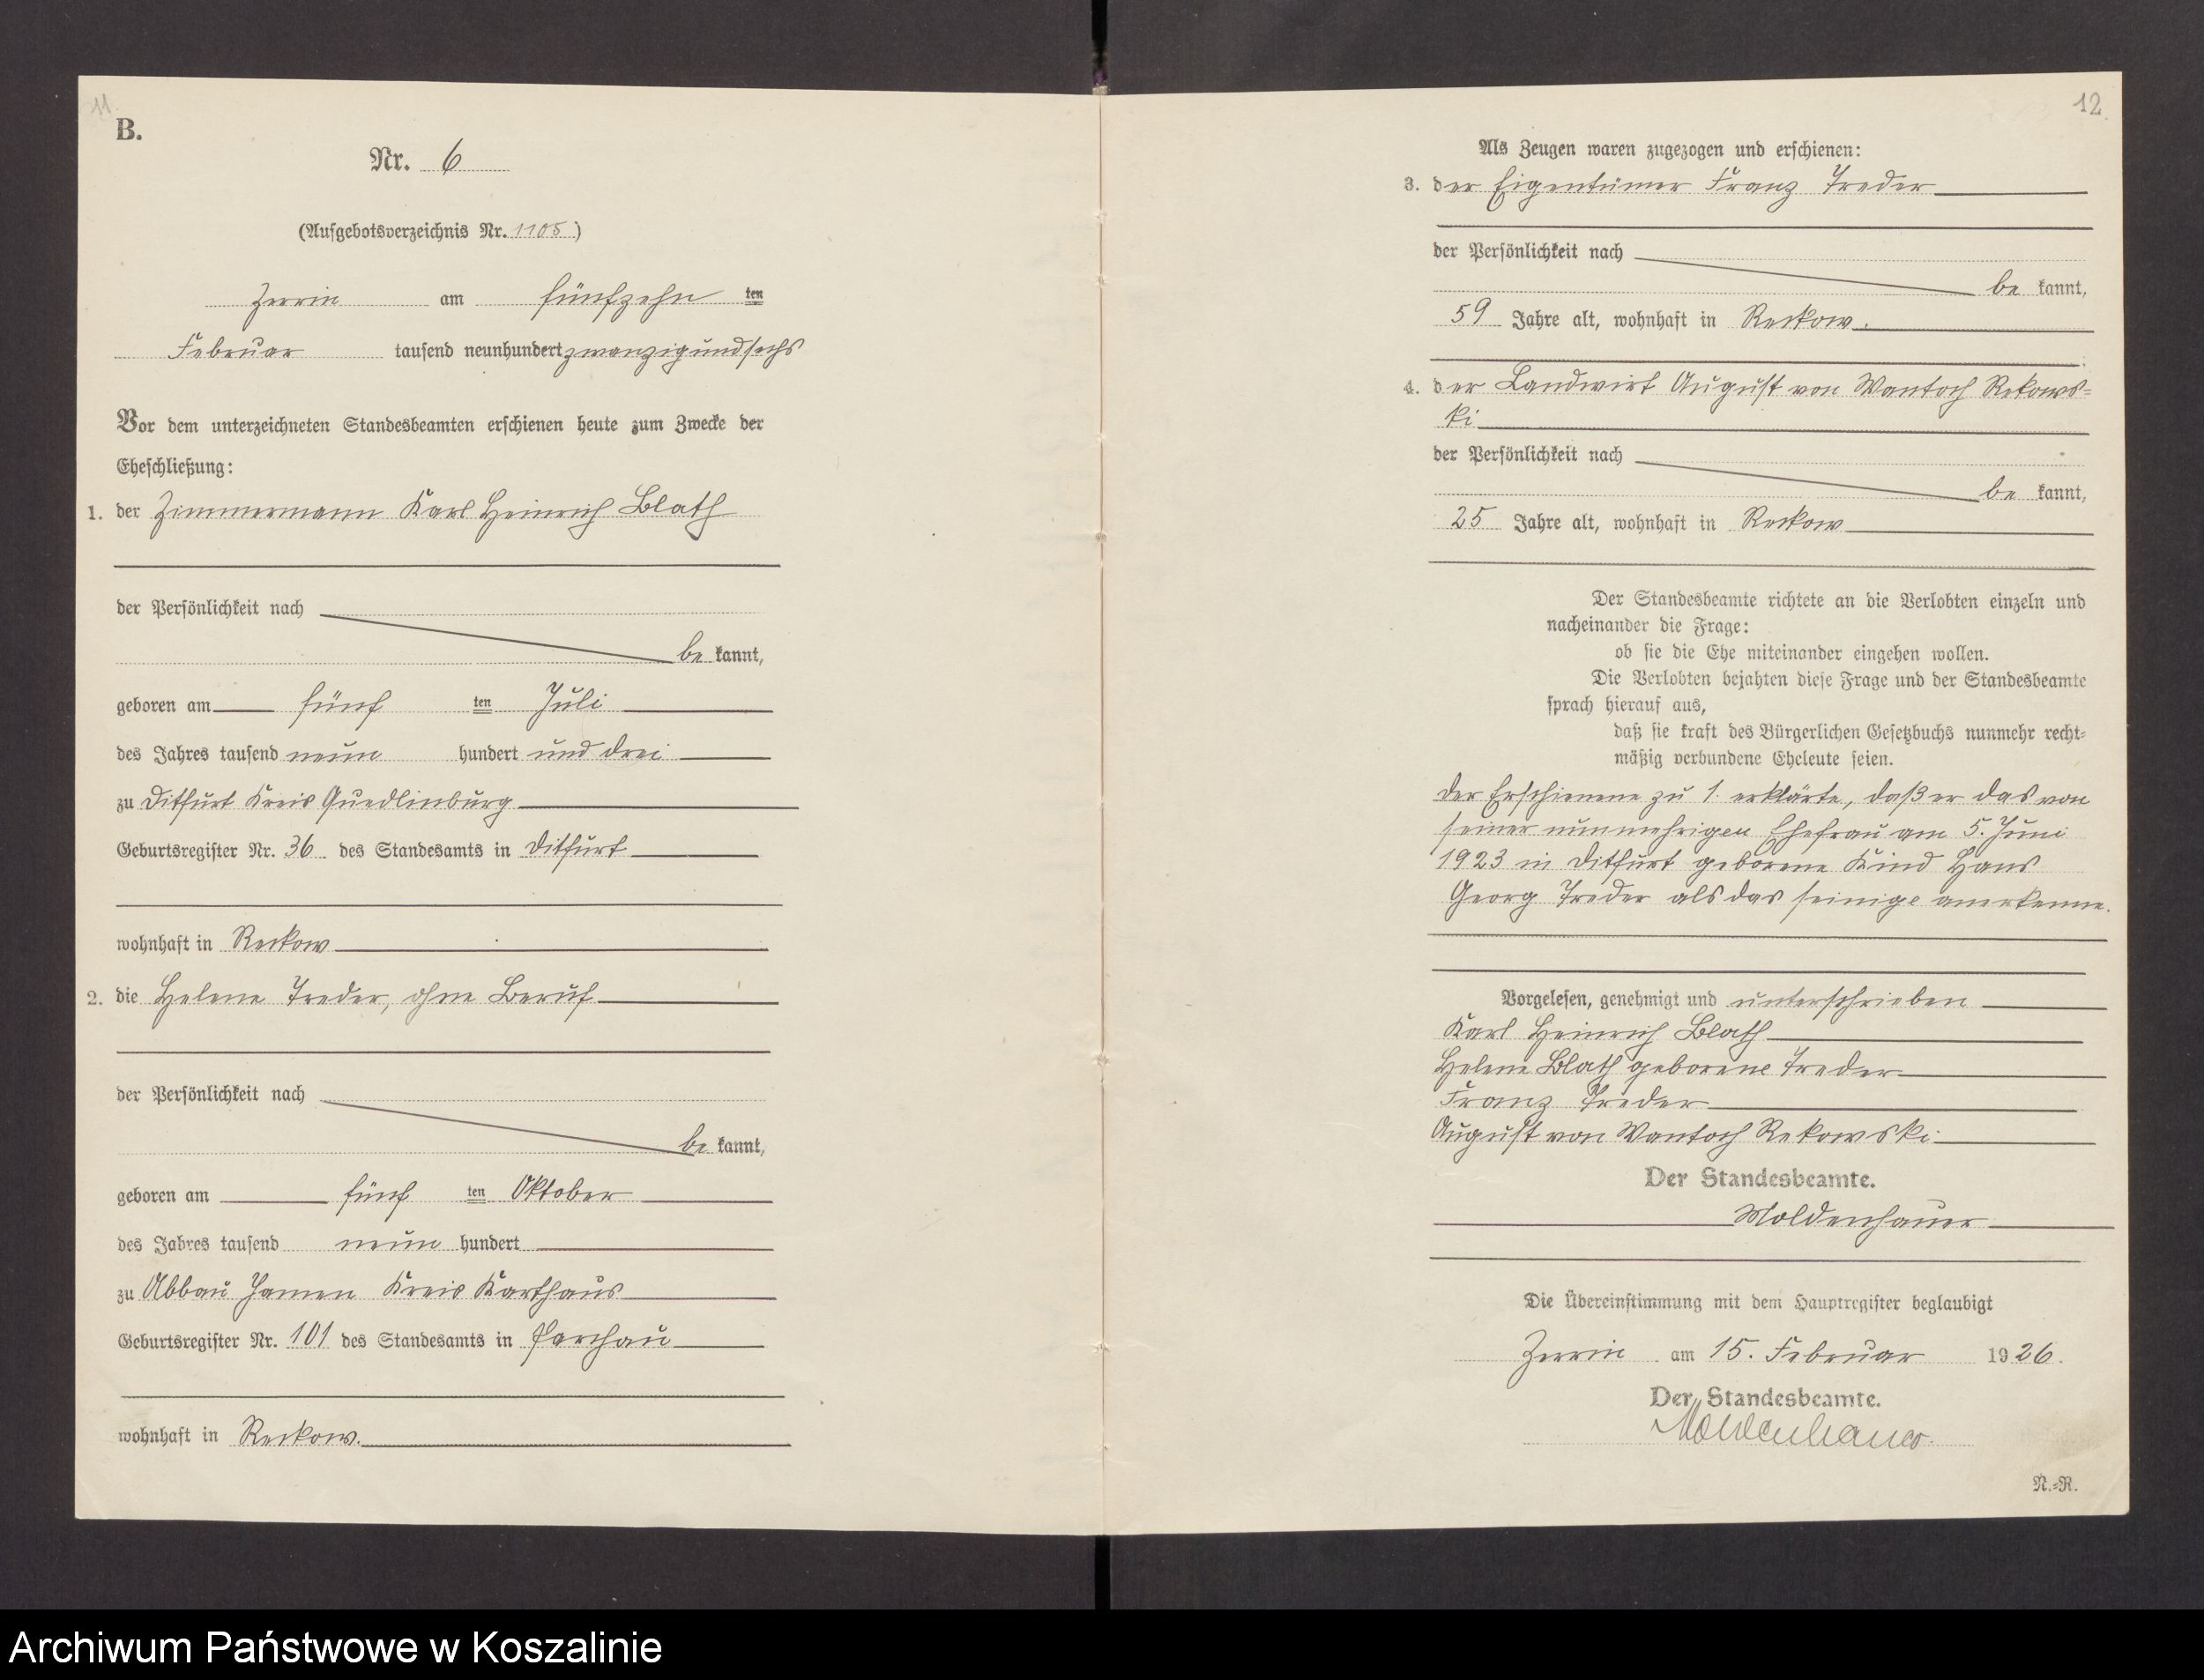 11
B.
Nr. 6
(Aufgebotsverzeichnis Nr. 1105)
Zerrin am fünfzehn ten
Februar tausend neunhundert zwanzigundsechs
Vor dem unterzeichneten Standesbeamten erschienen heute zum Zwecke der
Eheschließung:
1. der Zimmermann Karl Heinrich Blath
der Persönlichkeit nach
be kannt,
geboren am fünf ten Juli
des Jahres tausend neun hundert und drei
zu Ditfurt Kreis Quedlinburg
Geburtsregister Nr. 36 des Standesamts in Ditfurt
wohnhaft in Reckow
2. die Helene Treder, ohne Beruf
der Persönlichkeit nach
be kannt,
geboren am fünf ten Oktober
des Jahres tausend neun hundert
zu Abbau Jamen Kreis Karthaus
Geburtsregister Nr. 101 des Standesamts in Parchau
wohnhaft in Reckow.
12
Als Zeugen waren zugezogen und erschienen:
3. der Eigentümer Franz Treder
der Persönlichkeit nach
be kannt,
59 Jahre alt, wohnhaft in Reckow.
4. der Landwirt August von Wantoch Rekows=
ki
der Persönlichkeit nach
be kannt,
25 Jahre alt, wohnhaft in Reckow
Der Standesbeamte richtete an die Verlobten einzeln und
nacheinander die Frage:
ob sie die Ehe miteinander eingehen wollen.
Die Verlobten bejahten diese Frage und der Standesbeamte
sprach hierauf aus,
daß sie kraft des Bürgerlichen Gesetzbuchs nunmehr recht=
mäßig verbundene Eheleute seien.
Der Erschienene zu 1. erklärte, daß er das von
seiner nunmehrigen Ehefrau am 5. Juni
1923 in Ditfurt geborene Kind Hans
Georg Treder als das seinige anerkenne.
Vorgelesen, genehmigt und unterschrieben
Karl Heinrich Blath
Helene Blath geborene Treder
Franz Treder
August von Wantoch Rekowski
Der Standesbeamte.
Moldenhauer
Die Übereinstimmung mit dem Hauptregister beglaubigt
Zerrin am 15. Februar 1926.
Der Standesbeamte.
Moldenhauer.
N.=R.
Archiwum Państwowe w Koszalinie